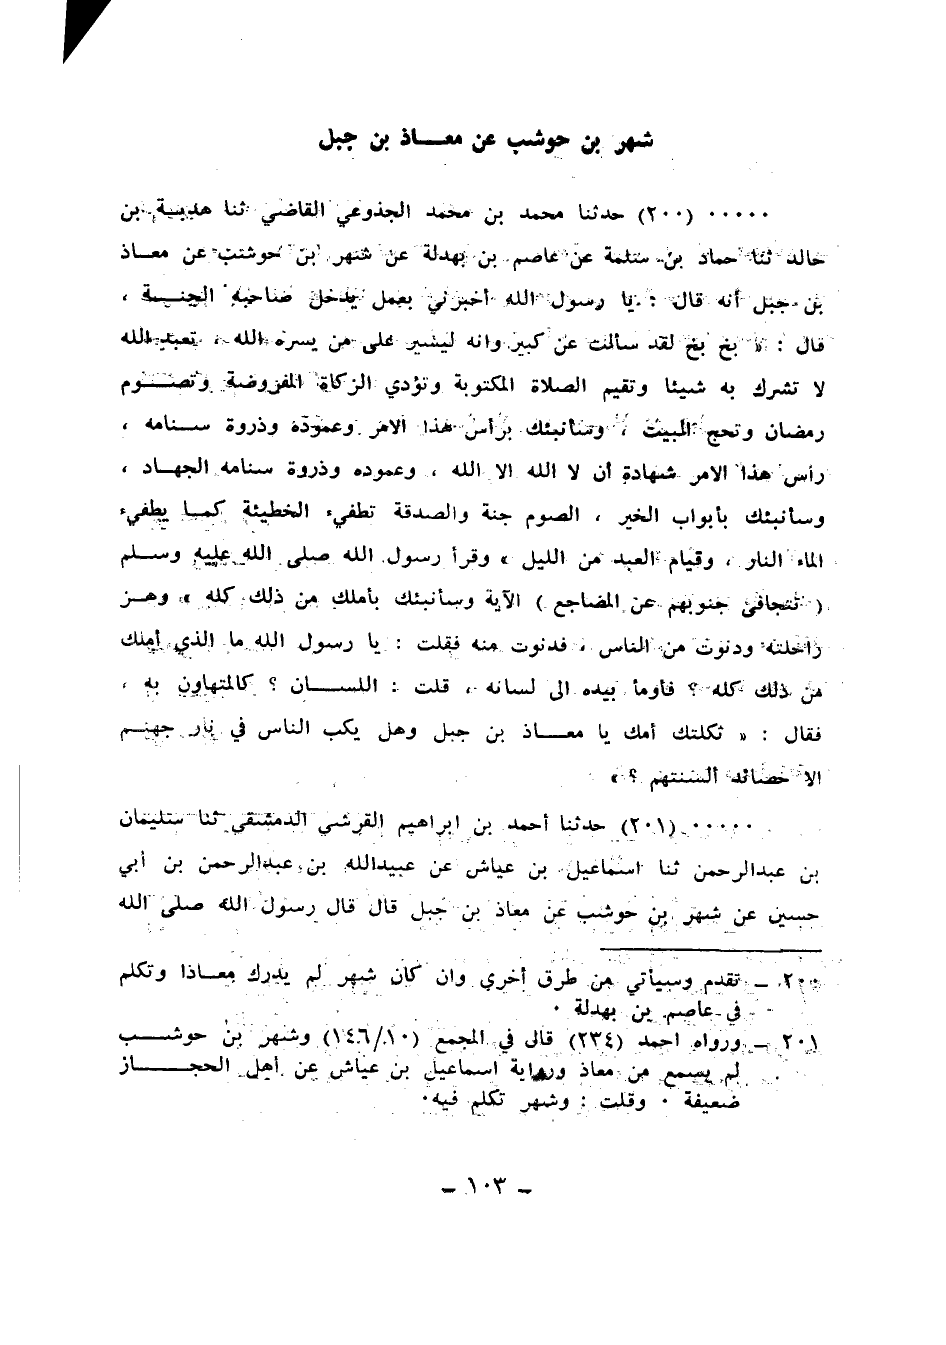 شهر بن حوشب عن معـــاذ بن جبل
٠٠٠٠٠ (٢٠٠) حدثنا محمد بن محمد الجذوعي القاضي ثنا هدبـــة بن
خالد ثنا حماد بن سلمة عن عاصم بن بهدلة عن شهر بن حوشب عن معـــاذ
بن جبل أنه قال : يا رسول الله أخبرني بعمل يدخل صاحبه الجنـــة ،
قال : « بخ بخ لقد سألت عن كبير وانه ليسير على من يسره الله ، تعبد الله
لا تشرك به شيئا وتقيم الصلاة المكتوبة وتؤدي الزكاة المفروضة وتصـــوم
رمضان وتحج البيت ، وسأنبئك برأس هذا الامر وعموده وذروة ســـنامه ،
رأس هذا الامر شهادة أن لا الله الا الله ، وعموده وذروة سنامه الجهـاد ،
وسأنبئك بأبواب الخير ، الصوم جنة والصدقة تطفيء الخطيئة كمـا يطفيء
الماء النار ، وقيام العبد من الليل » وقرأ رسول الله صلى الله عليه وســـلم
( تتجافى جنوبهم عن المضاجع ) الآية وسأنبئك بأملك من ذلك كله » وهـــز
راحلته ودنوت من الناس ، فدنوت منه فقلت : يا رسول الله ما الذي أملك
من ذلك كله ؟ فأومأ بيده الى لسانه ، قلت : اللســـان ؟ كالمتهاون به ،
فقال : « ثكلتك أمك يا معـــاذ بن جبل وهل يكب الناس في نار جهنـــم
الا حصائد ألسنتهم ؟ »
٠٠٠٠٠ (٢٠١) حدثنا أحمد بن ابراهيم القرشي الدمشقي ثنا سليمان
بن عبدالرحمن ثنا اسماعيل بن عياش عن عبيدالله بن عبدالرحمن بن أبي
حسين عن شهر بن حوشب عن معاذ بن جبل قال قال رسول الله صلى الله
٢٠٠ ــ تقدم وسيأتي من طرق أخرى وان كان شهر لم يدرك معـاذا وتكلم
في عاصم بن بهدلة ٠
٢٠١ ــ ورواه احمد (٢٣٤) قال في المجمع (١٤٦/١٠) وشهر بن حوشـــب
لم يسمع من معاذ ورواية اسماعيل بن عياش عن أهل الحجـــاز
ضعيفة ٠ وقلت : وشهر تكلم فيه ٠
ــ ١٠٣ ــ